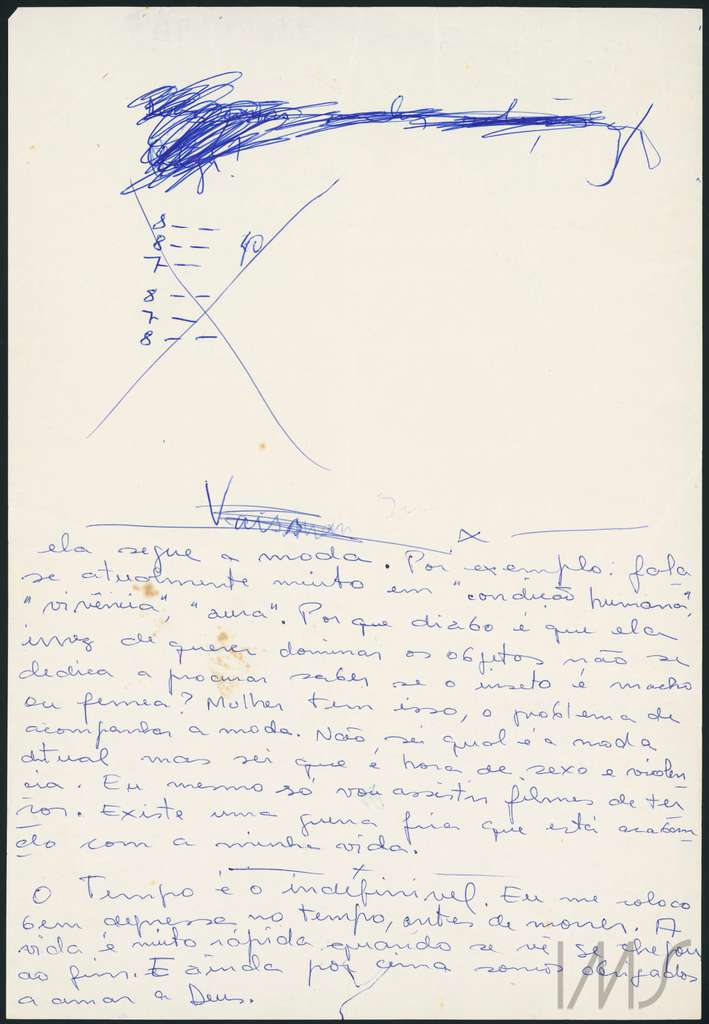 8 - -
8 - - 40
7 - -
8 - -
7 -
8 - -
ela segue a moda. Por exemplo: fala
se atualmente muito em "condição humana",
"vivência", "aura". Por que diabo é que ela
invez de querer dominar os objetos não se
dedica a procurar saber se o inseto é macho
ou femea? Mulher tem isso, o problema de
acompanhar a moda. Não sei qual é a moda
atual mas sei que é hora de sexo e violen-
cia. Eu mesmo só vou assistir filmes de ter-
ror. Existe uma guerra fria que está acaban-
do com a minha vida.
x
O Tempo é o indefinivel. Eu me coloco
bem depressa no tempo, antes de morrer. A
vida é muito rápida, quando se vê se chegou
ao fim. E ainda por cima somos obrigados
a amar a Deus.
IMS